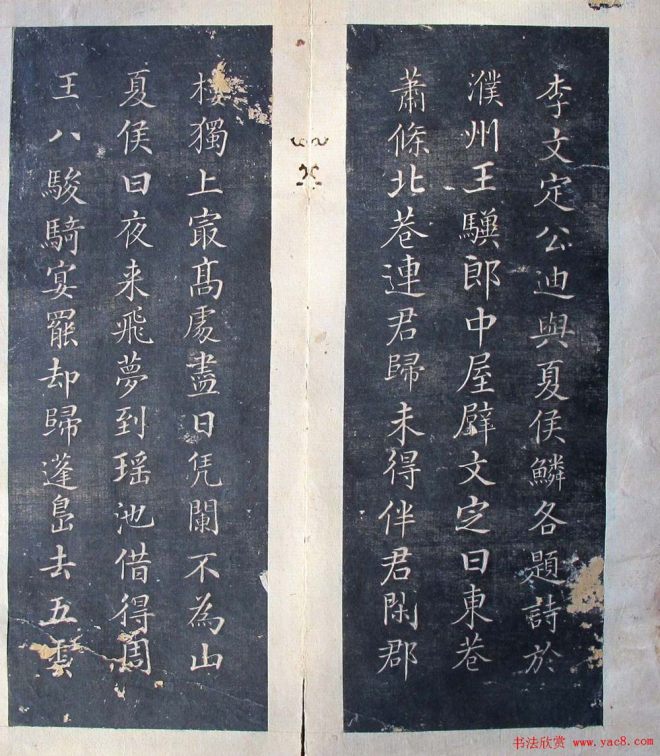 李文定公迪與夏侯鱗各題詩於
濮州王驥郎中屋壁文定曰東巷
蕭條北巷連君歸未得伴君閑郡
樓獨上寂髙處盡日凭闌不為山
夏侯曰夜来飛夢到瑶池借得周
王八駿騎宴罷却歸蓬島去五雲
书法欣赏 www.yac8.com